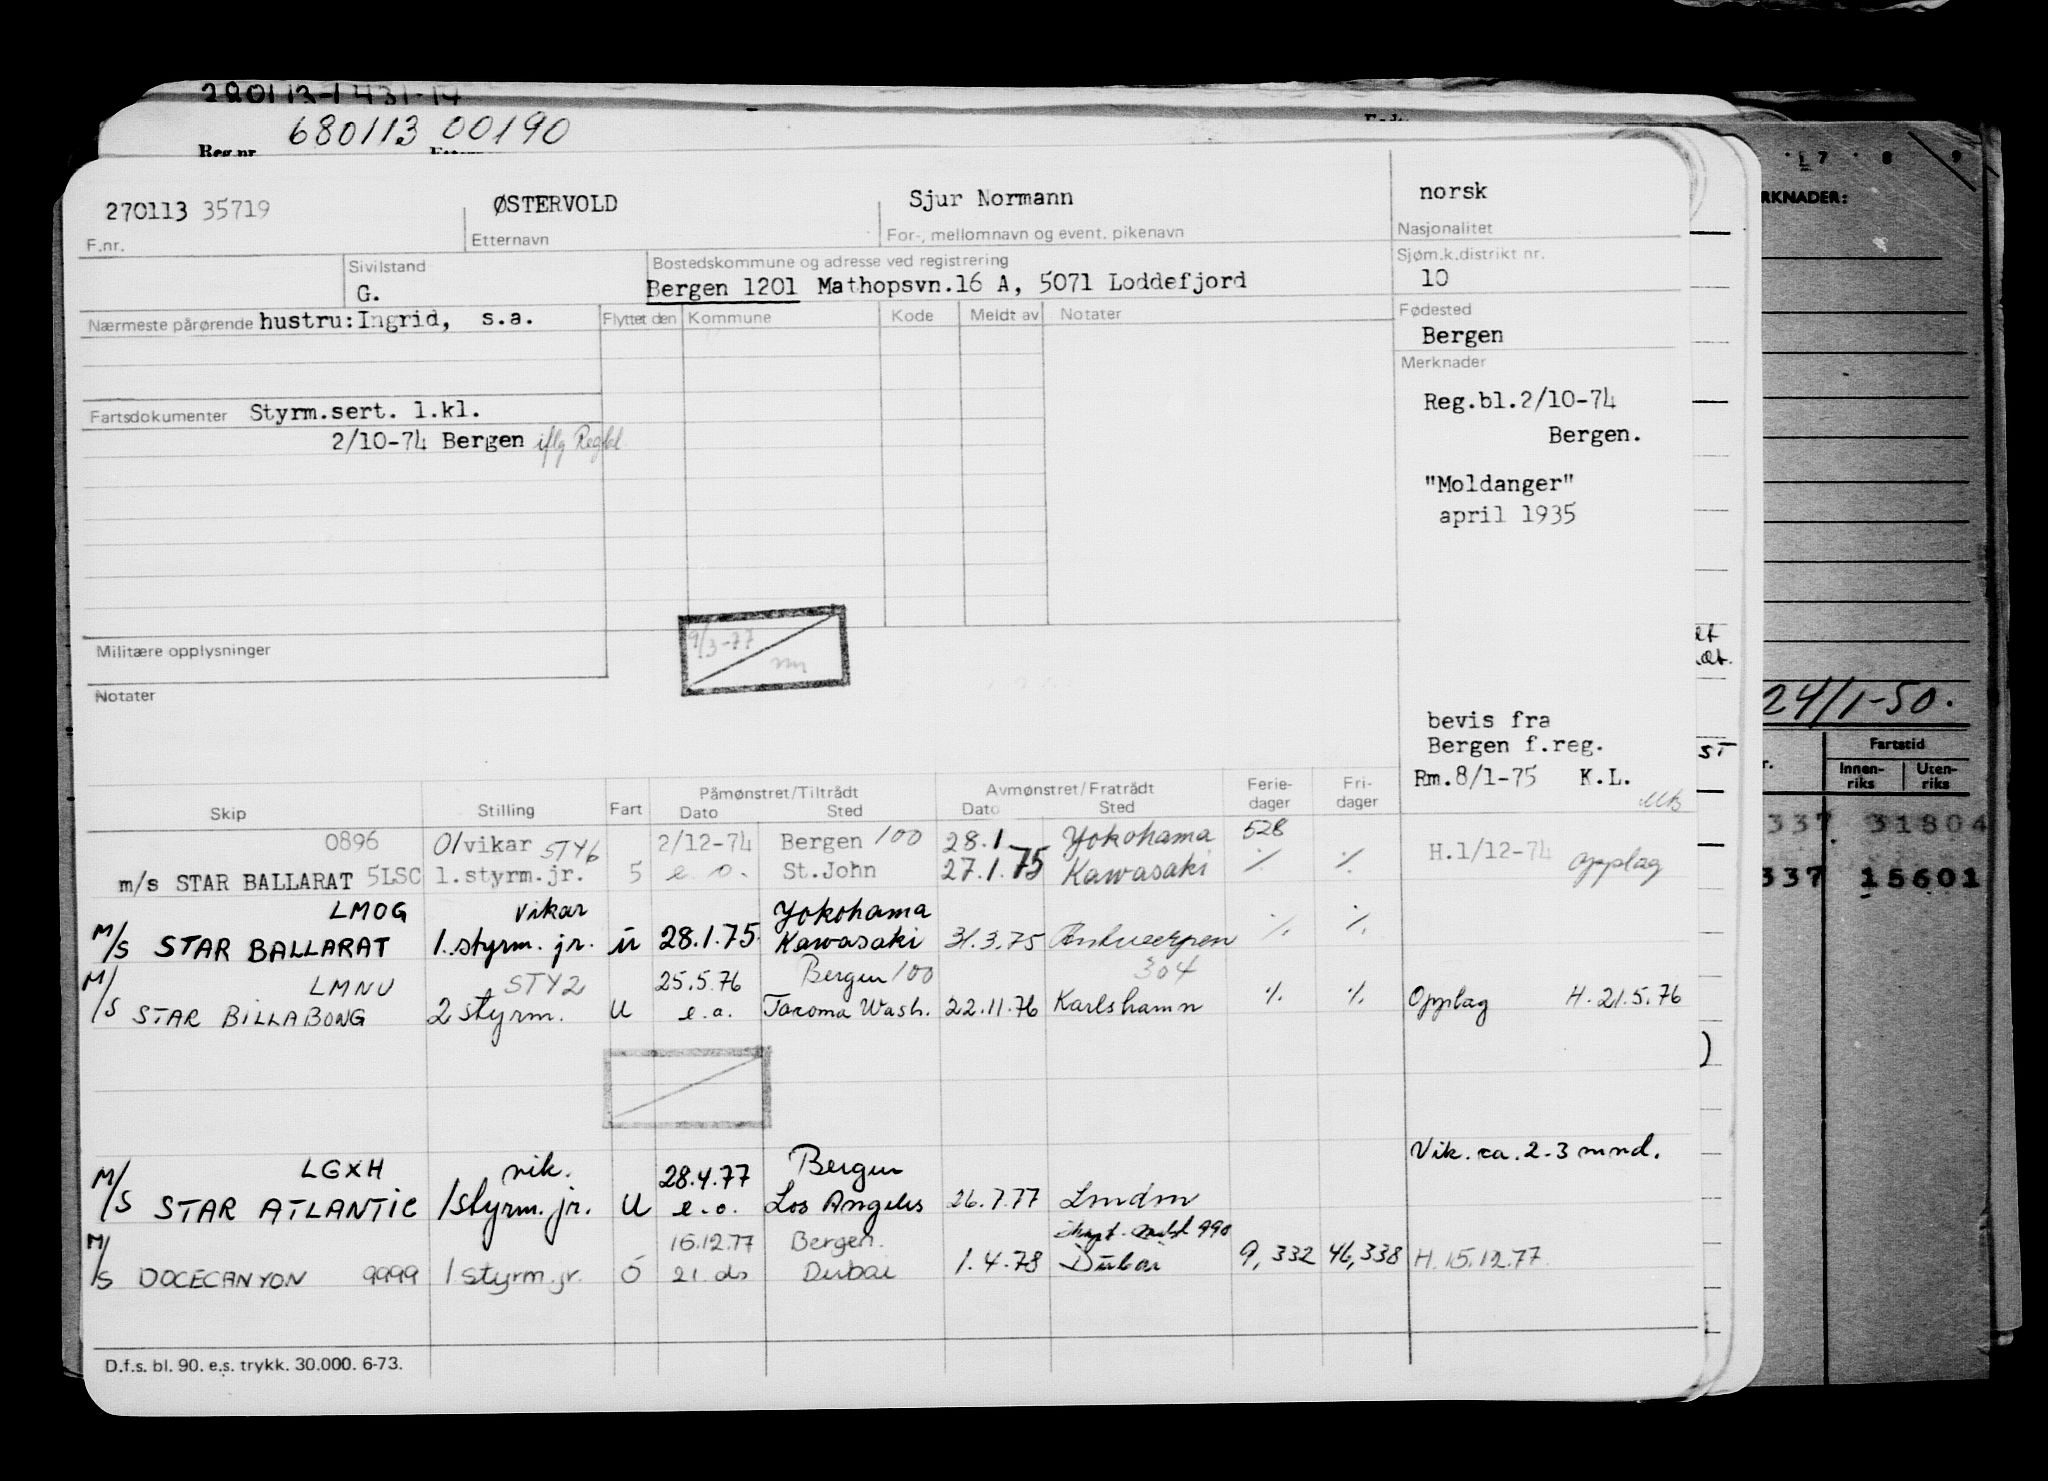 280113-1431-14
680113 00190
Reg.nr.
270113 35719 ØSTERVOLD Sjur Normann norsk
F.nr. Etternavn For-, mellomnavn og event. pikenavn Nasjonalitet
Sivilstand Bostedskommune og adresse ved registrering Sjøm.k.distrikt nr.
G. Bergen 1201 Mathopsvn.16 A, 5071 Loddefjord 10
Nærmeste pårørende hustru:Ingrid, s.a. Flyttet den Kommune Kode Meldt av Notater Fødested
Bergen
Merknader
Fartsdokumenter Styrm.sert. 1.kl. Reg.bl.2/10-74
2/10-74 Bergen iflg Regbl Bergen.
"Moldanger"
april 1935
9/3-77
Militære opplysninger
Notater
bevis fra
Bergen f.reg.
Rm.8/1-75 K.L.
Påmønstret/Tiltrådt Avmønstret/Fratrådt Ferie- Fri-
Skip Stilling Fart Dato Sted Dato Sted dager dager
0896 O/vikar STY6 2/12-74 Bergen 100 28.1 Yokohama 528 H.1/12-74
m/s STAR BALLARAT 5LSC 1.styrm.jr. 5 e.o. St.John 27.1.75 Kawasaki ٪ ٪ Opplag
LMOG vikar Yokohama
M/S STAR BALLARAT 1.styrm. jr. ü 28.1.75. Kawasaki 31.3.75 Antwerpen ٪ ٪
LMNU STY2 25.5.76 Bergen 100 304
M/S STAR BILLABONG 2 styrm. U e.o. Tacoma Wash. 22.11.76 Karlshamn ٪ ٪ Opplag H. 21.5.76
Vik. ca. 2-3 mnd.
LGXH vik. 28.4.77 Bergen
M/S STAR ATLANTIC 1styrm. jr. U e.o. Los Angeles 26.7.77 London
16.12.77 Bergen. 990
M/S DOCECANYON 9999 1 styrm.jr. Ö 21. ds Dubai 1.4.78 Dubai 9,332 46,338 H. 15.12.77
D.f.s. bl. 90. e.s. trykk. 30.000. 6-73.
17 8 9
RKNADER:
24/1-50.
Fartstid
Innen-riks Uten-riks
337 31804
337 15601